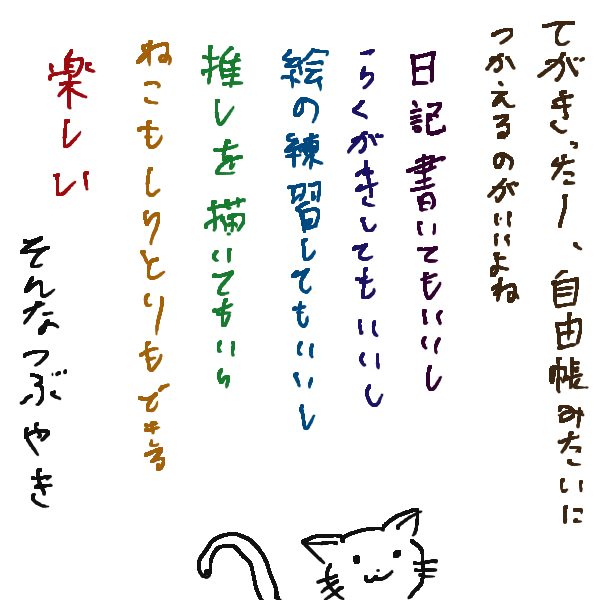 てがきったー、自由帳みたいに
つかえるのがいいよね
日記書いてもいいし
らくがきしてもいいし
絵の練習してもいいし
推しを描いてもいいし
ねこもしりとりもできる
楽しい
そんなつぶやき